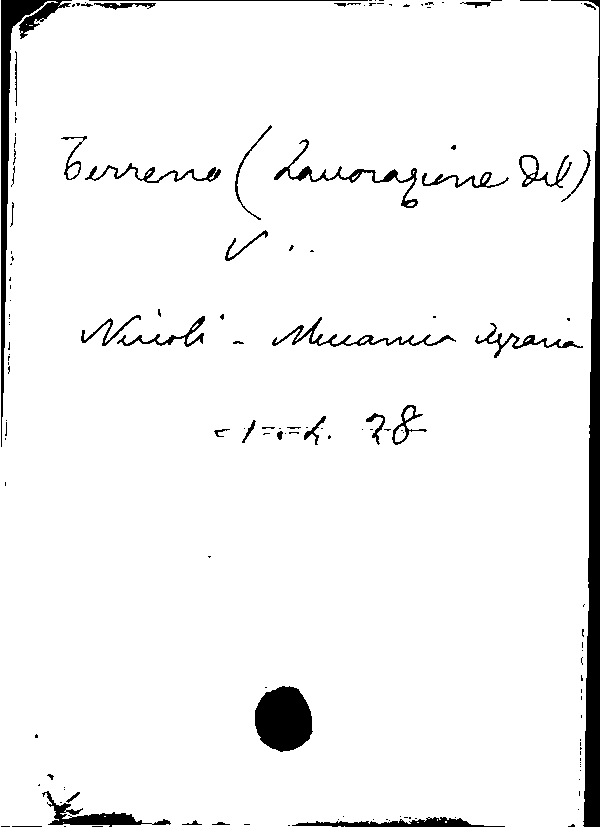 Terreno (Lavorazione del)
V. . .
Niccoli - Meccanica Agraria
28